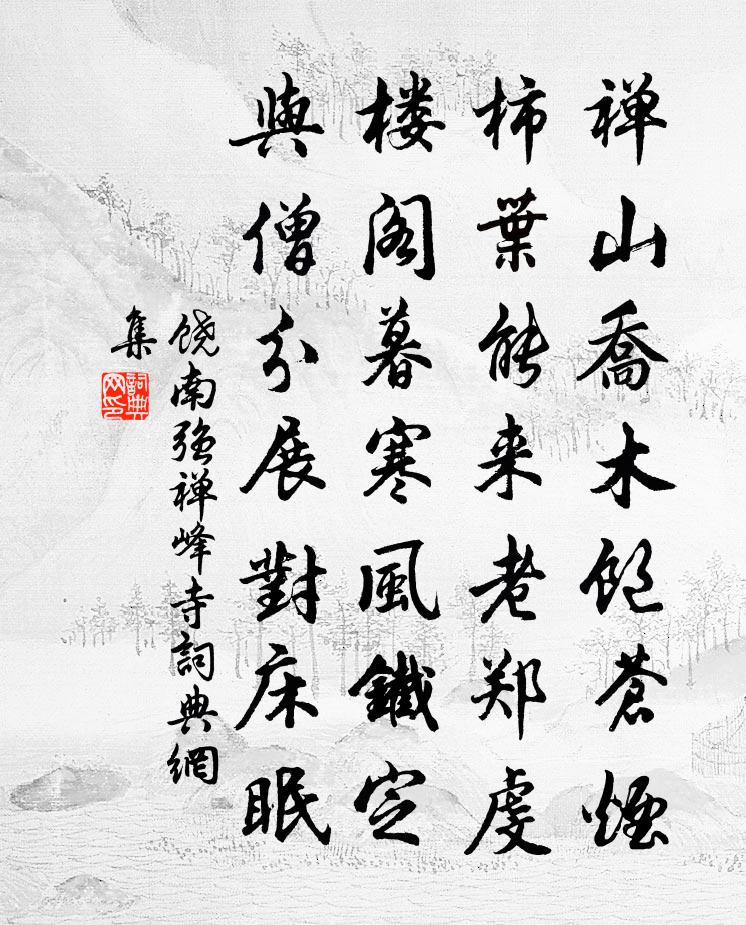 禅山喬木飽蒼煙
柿葉能来老郑虔
楼阁暮寒風鐵定
與僧分展對床眠
饶南强禅峰寺詞典網
集
詞典网印